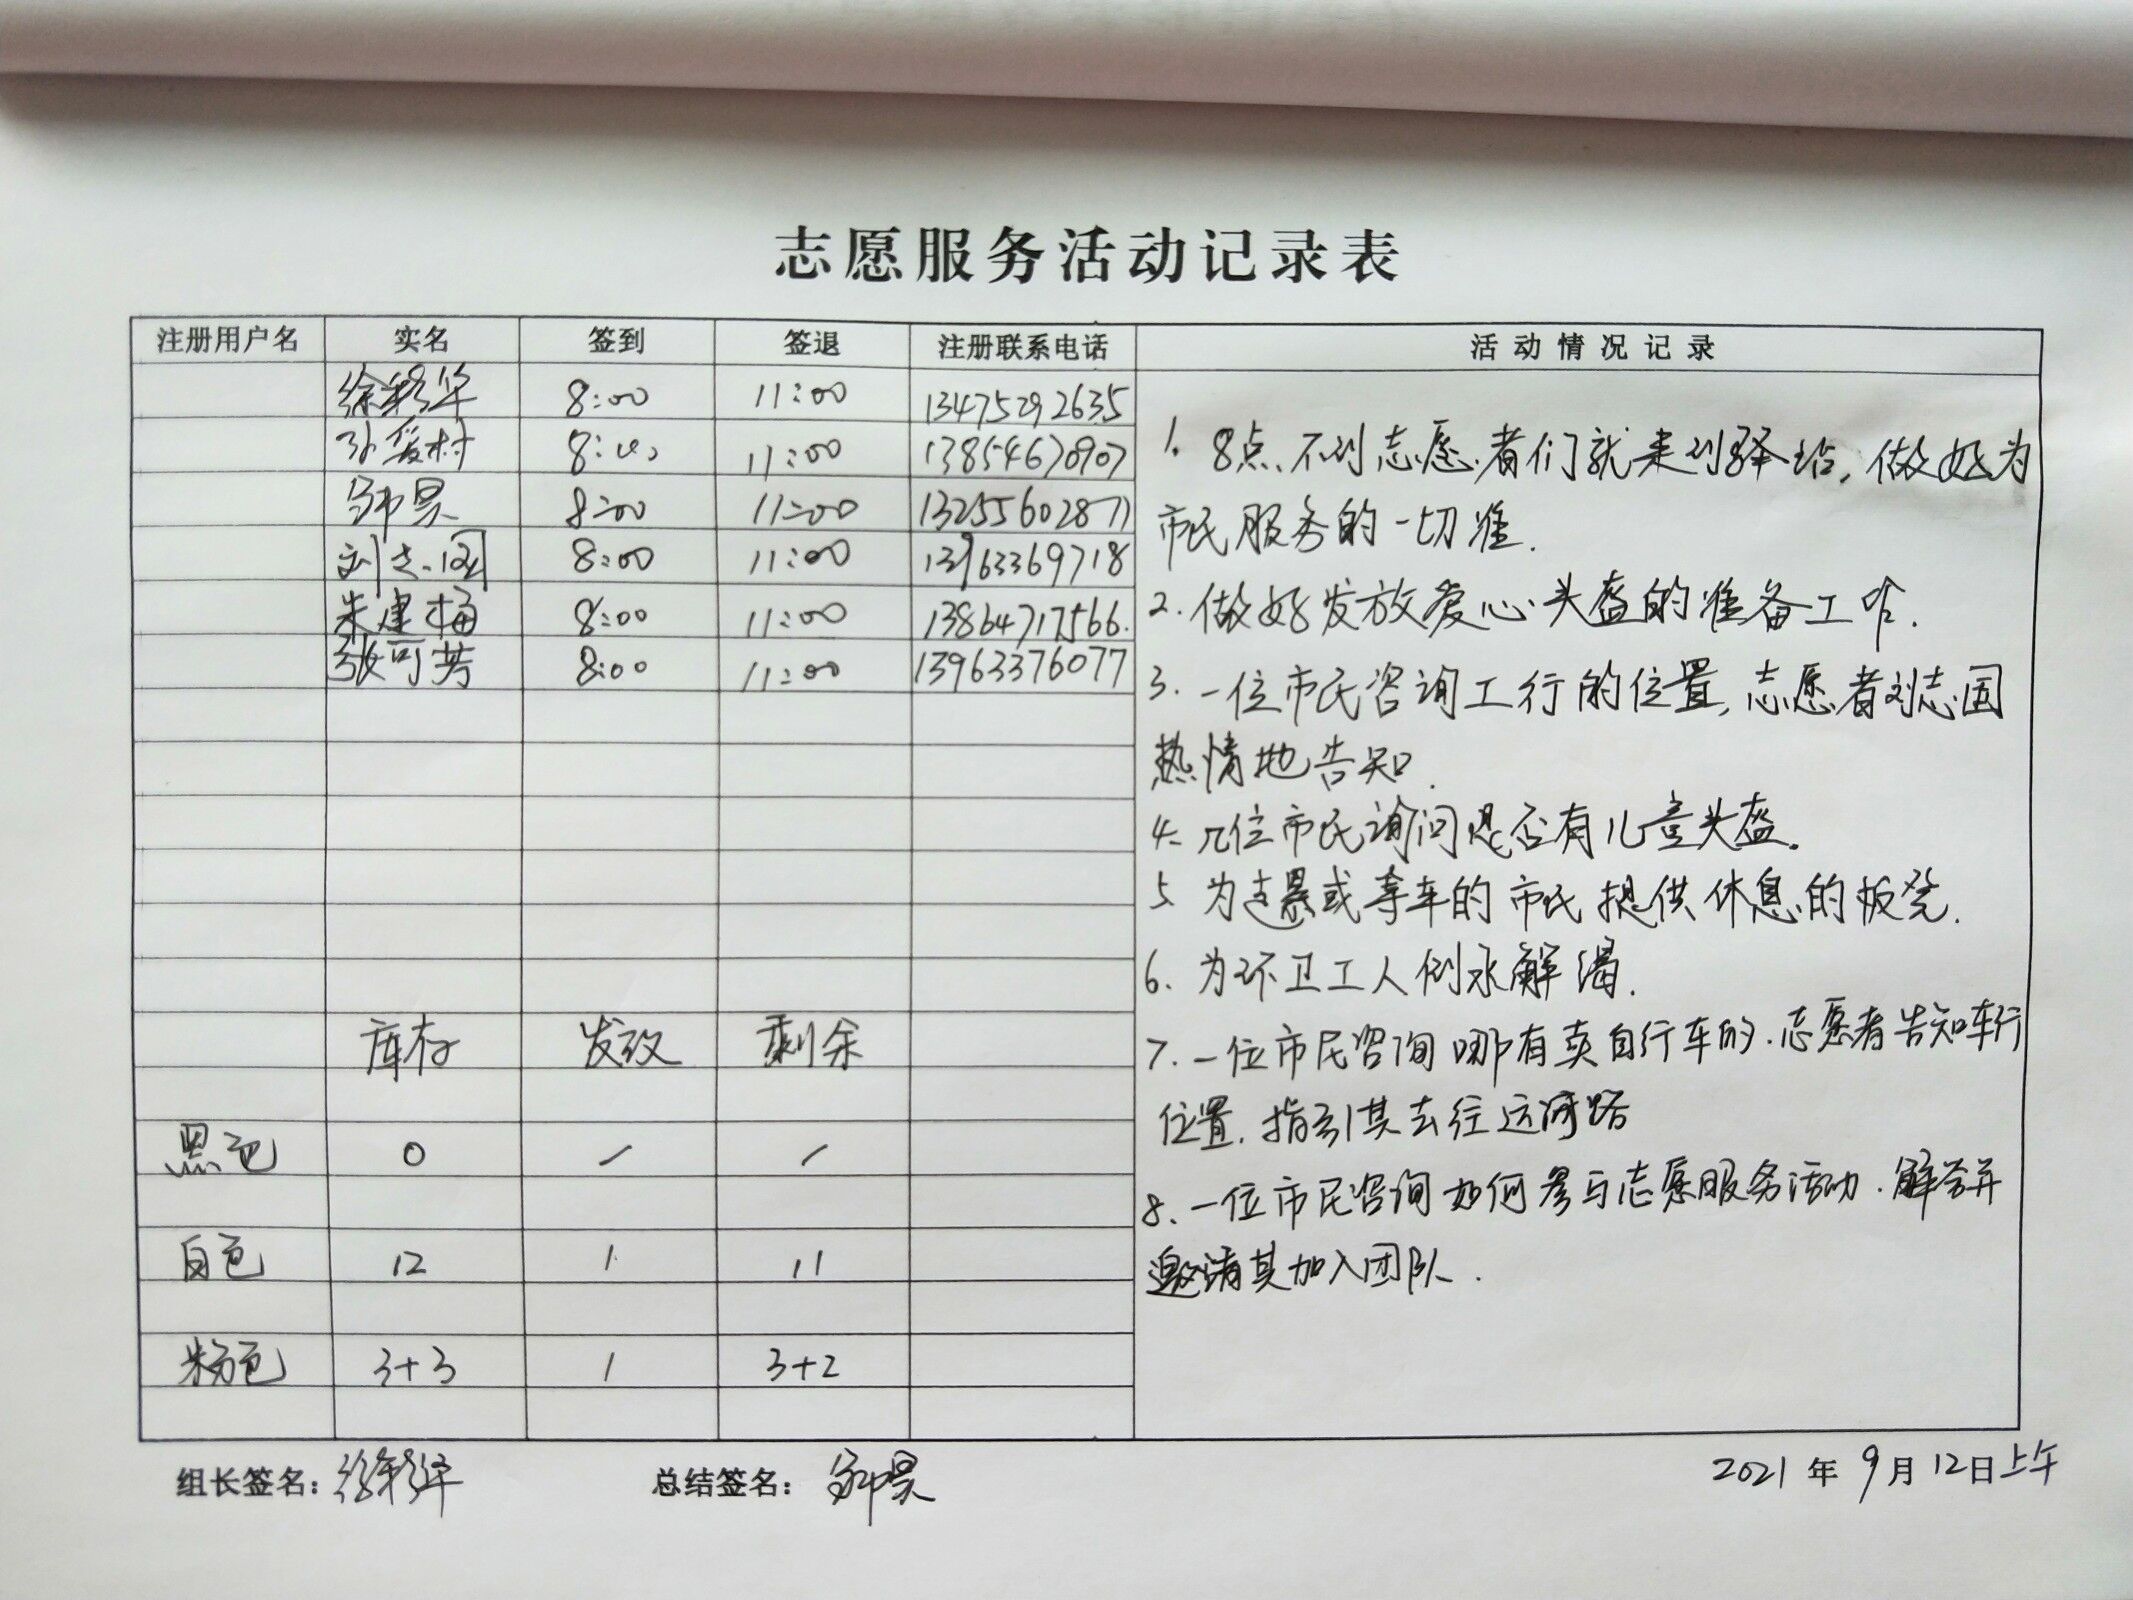 志愿服务活动记录表
注册用户名 实名 签到 签退 注册联系电话 活动情况记录
徐彩华 8:00 11:00 13475292635
孙爱村 8:00 11:00 13854670907
8:00 11:00 13255602877
刘志国 8:00 11:00 13963369718
朱建梅 8:00 11:00 13864717566.
张可芳 8:00 11:00 13963376077
库存 发放 剩余
黑色 0 / /
白色 12 1 11
粉色 3+3 1 3+2
1. 8点不到志愿者们就来到驿站,做好为
市民服务的一切准.
2.做好发放爱心头盔的准备工作.
3.一位市民咨询工行的位置,志愿者刘志国
热情地告知.
4.几位市民询问是否有儿童头盔。
5 为走累或等车的市民提供休息的板凳.
6.为环卫工人倒水解渴.
7.一位市民咨询哪有卖自行车的.志愿者告知车行
位置.指引其去往运河路
8.一位市民咨询如何参与志愿服务活动.解答并
邀请其加入团队.
组长签名:徐彩华 总结签名: 2021年9月12日上午